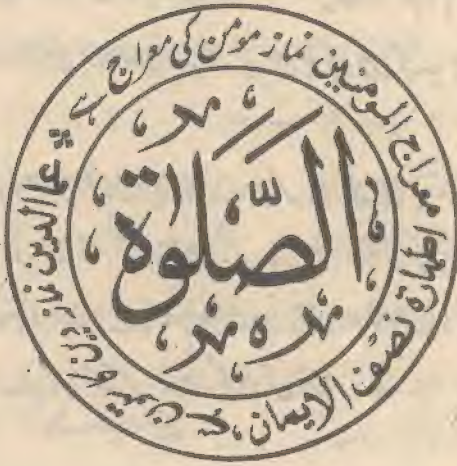 الصّلوٰة
معراج المومنین نماز مومن کی معراج ہے
اطہارۃ نصف الایمان،
عماالدین نماز دین کا ستون